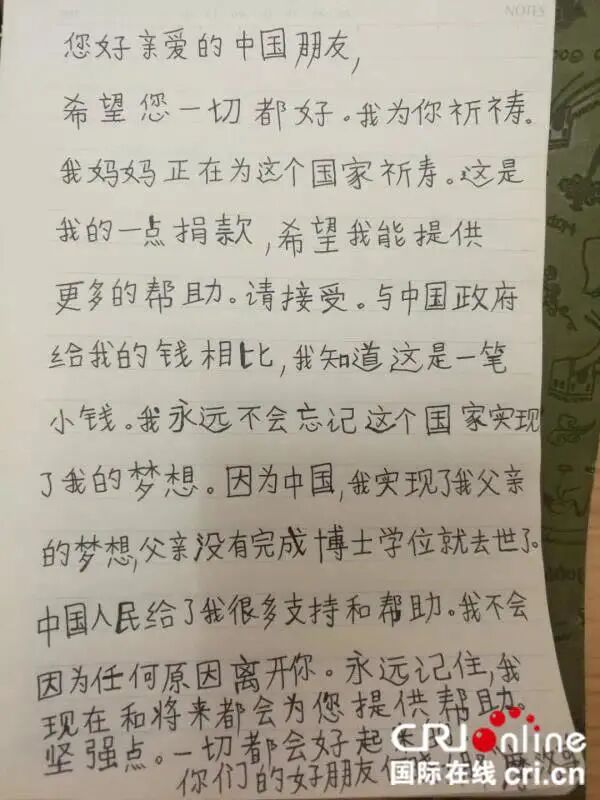 NOTES
您好亲爱的中国朋友,
希望您一切都好。我为你祈祷。
我妈妈正在为这个国家祈寿。这是
我的一点捐款,希望我能提供
更多的帮助。请接受。与中国政府
给我的钱相比,我知道这是一笔
小钱。我永远不会忘记这个国家实现
了我的梦想。因为中国,我实现了我父亲
的梦想,父亲没有完成博士学位就去世了。
中国人民给了我很多支持和帮助。我不会
因为任何原因离开你。永远记住,我
现在和将来都会为您提供帮助。
坚强点。一切都会好起
你们的好朋友
CRIonline
国际在线 cri.cn